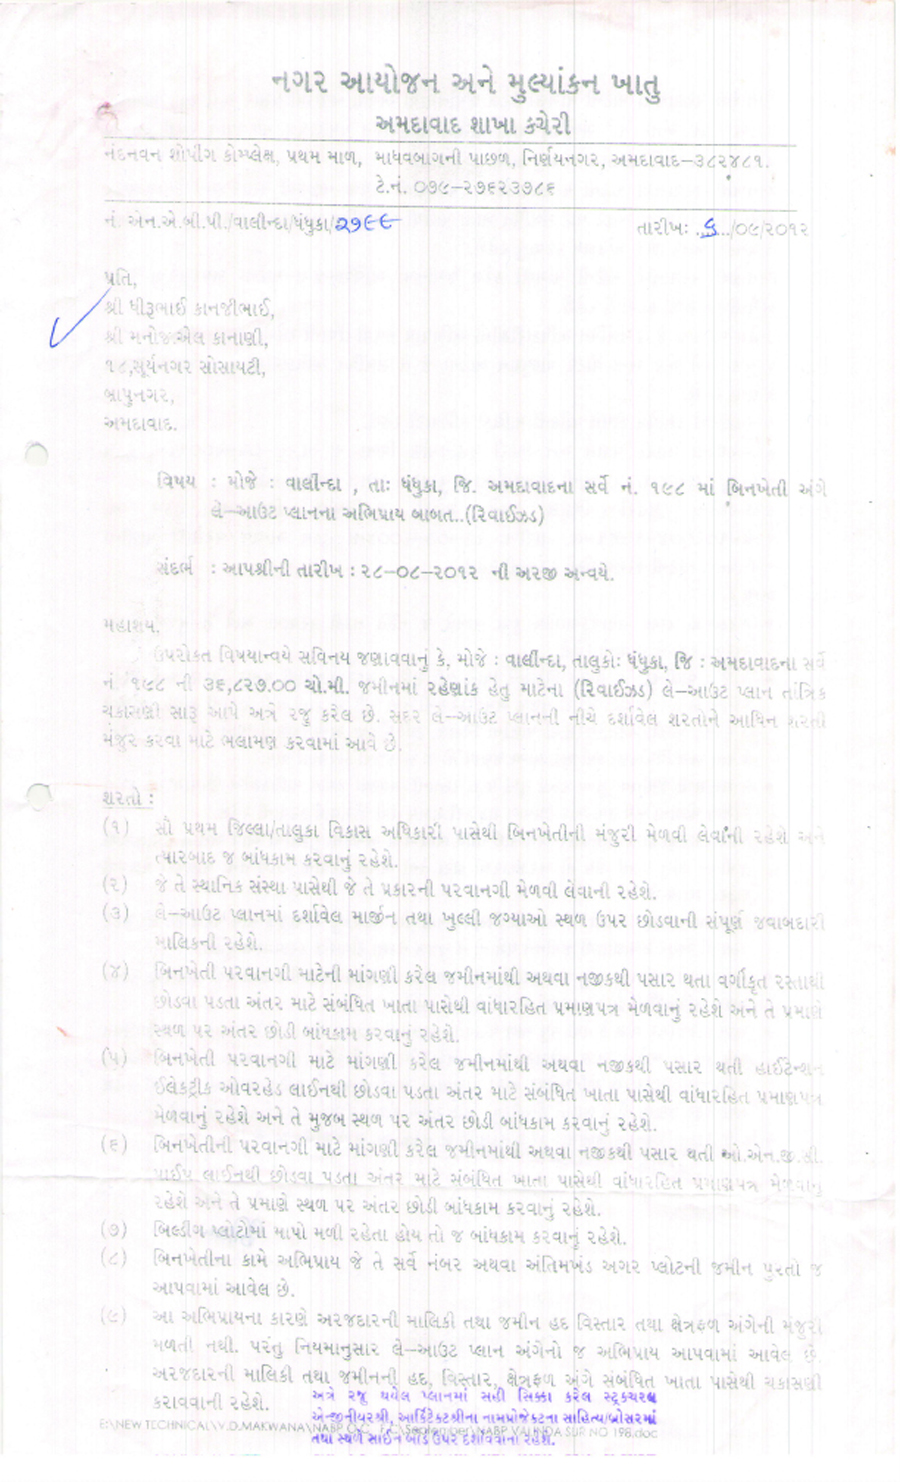 નગર આયોજન અને મુલ્યાંકન ખાતુ
અમદાવાદ શાખા કચેરી
નંદનવન શોપીંગ કોમ્પ્લેક્ષ, પ્રથમ માળ, માધવબાગની પાછળ, નિર્ણયનગર, અમદાવાદ–૩૮૨૪૮૧.
ટે.નં. ૦૭૯–૨૭૬૨૩૭૮૬
નં. એન.એ.બી.પી./વાલીન્દા/ધંધુકા/૨૭૯૯ તારીખઃ ..૬../૦૯/૨૦૧૨
પ્રતિ,
શ્રી ધીરૂભાઈ કાનજીભાઈ,
શ્રી મનોજ એલ કાનાણી,
૧૮,સૂર્યનગર સોસાયટી,
બાપુનગર,
અમદાવાદ.
વિષય : મોજે : વાલીન્દા , તાઃ ધંધુકા, જિ. અમદાવાદના સર્વે નં. ૧૯૮ માં બિનખેતી અંગે
લે–આઉટ પ્લાનના અભિપ્રાય બાબત..(રિવાઈઝડ)
સંદર્ભ : આપશ્રીની તારીખ : ૨૮–૦૮–૨૦૧૨ ની અરજી અન્વયે.
મહાશય,
ઉપરોકત વિષયાન્વયે સવિનય જણાવવાનું કે, મોજે : વાલીન્દા, તાલુકોઃ ધંધુકા, જિ : અમદાવાદના સર્વે
નં. ૧૯૮ ની ૩૬,૮૨૭.૦૦ ચો.મી. જમીનમાં રહેણાંક હેતુ માટેના (રિવાઈઝડ) લે–આઉટ પ્લાન તાંત્રિક
ચકાસણી સારૂ આપે અત્રે રજુ કરેલ છે. સદર લે–આઉટ પ્લાનની નીચે દર્શાવેલ શરતોને આધિન શરતી
મંજુર કરવા માટે ભલામણ કરવામાં આવે છે.
શરતો :
(૧) સૌ પ્રથમ જિલ્લા/તાલુકા વિકાસ અધિકારી પાસેથી બિનખેતીની મંજુરી મેળવી લેવાની રહેશે અને
ત્યારબાદ જ બાંધકામ કરવાનું રહેશે.
(૨) જે તે સ્થાનિક સંસ્થા પાસેથી જે તે પ્રકારની પરવાનગી મેળવી લેવાની રહેશે.
(૩) લે–આઉટ પ્લાનમાં દર્શાવેલ માર્જીન તથા ખુલ્લી જગ્યાઓ સ્થળ ઉપર છોડવાની સંપૂર્ણ જવાબદારી
માલિકની રહેશે.
(૪) બિનખેતી પરવાનગી માટેની માંગણી કરેલ જમીનમાંથી અથવા નજીકથી પસાર થતા વર્ગીકૃત રસ્તાથી
છોડવા પડતા અંતર માટે સંબંધિત ખાતા પાસેથી વાંધારહિત પ્રમાણપત્ર મેળવાનું રહેશે અને તે પ્રમાણે
સ્થળ પર અંતર છોડી બાંધકામ કરવાનું રહેશે.
(૫) બિનખેતી પરવાનગી માટે માંગણી કરેલ જમીનમાંથી અથવા નજીકથી પસાર થતી હાઈટેન્શન
ઈલેકટ્રીક ઓવરહેડ લાઈનથી છોડવા પડતા અંતર માટે સંબંધિત ખાતા પાસેથી વાંધારહિત પ્રમાણપત્ર
મેળવાનું રહેશે અને તે મુજબ સ્થળ પર અંતર છોડી બાંધકામ કરવાનું રહેશે.
(૬) બિનખેતીની પરવાનગી માટે માંગણી કરેલ જમીનમાંથી અથવા નજીકથી પસાર થતી ઓ.એન.જી.સી.
પાઈપ લાઈનથી છોડવા પડતા અંતર માટે સંબંધિત ખાતા પાસેથી વાંધારહિત પ્રમાણપત્ર મેળવાનુ
રહેશે અને તે પ્રમાણે સ્થળ પર અંતર છોડી બાંધકામ કરવાનું રહેશે.
(૭) બિલ્ડીંગ પ્લોટોમાં માપો મળી રહેતા હોય તો જ બાંધકામ કરવાનું રહેશે.
(૮) બિનખેતીના કામે અભિપ્રાય જે તે સર્વે નંબર અથવા અંતિમખંડ અગર પ્લોટની જમીન પુરતો જ
આપવામાં આવેલ છે.
(૯) આ અભિપ્રાયના કારણે અરજદારની માલિકી તથા જમીન હદ વિસ્તાર તથા ક્ષેત્રફળ અંગેની મંજુરી
મળતી નથી. પરંતુ નિયમાનુસાર લે–આઉટ પ્લાન અંગેનો જ અભિપ્રાય આપવામાં આવેલ છે.
અરજદારની માલિકી તથા જમીનની હદ, વિસ્તાર, ક્ષેત્રફળ અંગે સંબંધિત ખાતા પાસેથી ચકાસણી
કરાવવાની રહેશે.
અત્રે રજુ થયેલ પ્લાનમાં સહી સિક્કા કરેલ સ્ટ્રકચરલ
એન્જીનીયરશ્રી, આર્કિટેકટશ્રીના નામપ્રોજેકટના સાહિત્ય/બ્રોસરમાં
E:\NEW TECHNICAL\V.D.MAKWANA\NABP VALINDA SUR NO 198.doc
તથા સ્થળે સાઈન બોર્ડ ઉપર દર્શાવવાના રહેશે.